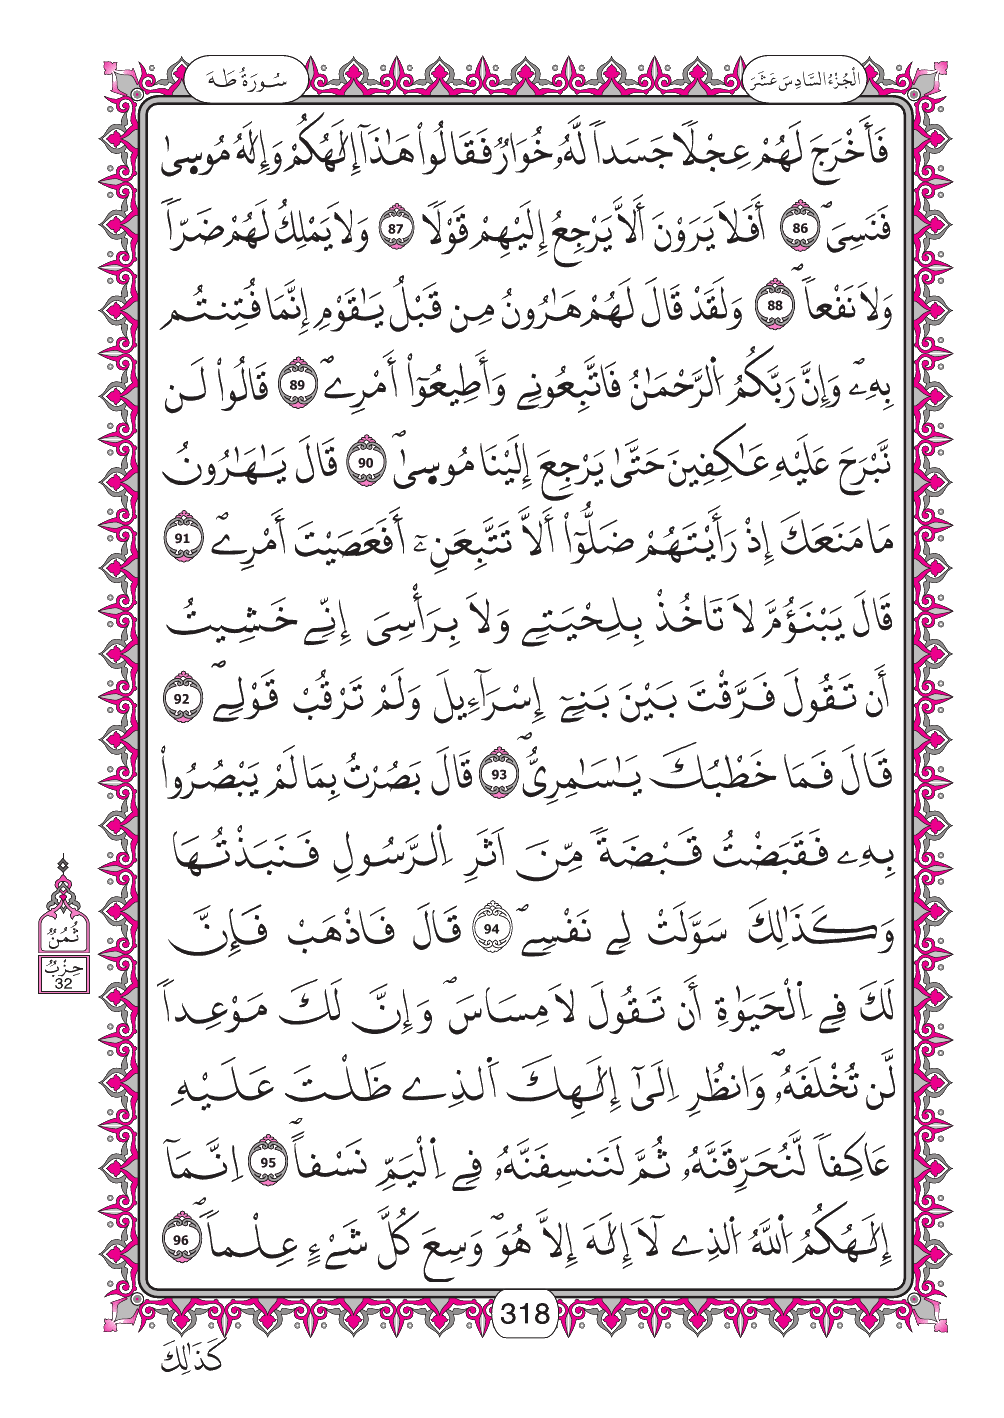 سُورَةُ طَهَ
الْجُزْءُ السَّادِسَ عَشَرَ
فَأَخْرَجَ لَهُمْ عِجْلاً جَسَداً لَّهُۥ خُوَارٌ فَقَالُواْ هَٰذَآ إِلَٰهُكُمْ وَإِلَٰهُ مُوسِيٰ
فَنَسِىَۖ 86 أَفَلاَ يَرَوْنَ أَلاَّ يَرْجِعُ إِلَيْهِمْ قَوْلاً 87 وَلاَ يَمْلِكُ لَهُمْ ضَرّاً
وَلاَ نَفْعاًۖ 88 وَلَقَدْ قَالَ لَهُمْ هَٰرُونُ مِن قَبْلُ يَٰقَوْمِ إِنَّمَا فُتِنتُم
بِهِۦۖ وَإِنَّ رَبَّكُمُ اُ۬لرَّحْمَٰنُ فَاتَّبِعُونِے وَأَطِيعُوٓاْ أَمْرِےۖ 89 قَالُواْ لَن
نَّبْرَحَ عَلَيْهِ عَٰكِفِينَ حَتَّىٰ يَرْجِعَ إِلَيْنَا مُوسِيٰۖ 90 قَالَ يَٰهَٰرُونُ
مَا مَنَعَكَ إِذْ رَأَيْتَهُمْ ضَلُّوٓاْ أَلاَّ تَتَّبِعَنِۦٓ أَفَعَصَيْتَ أَمْرِےۖ 91
قَالَ يَبْنَؤُمَّ لاَ تَاخُذْ بِلِحْيَتِے وَلاَ بِرَأْسِىَ إِنِّے خَشِيتُ
أَن تَقُولَ فَرَّقْتَ بَيْنَ بَنِےٓ إِسْرَآءِيلَ وَلَمْ تَرْقُبْ قَوْلِےۖ 92
قَالَ فَمَا خَطْبُكَ يَٰسَٰمِرِىُّۖ 93 قَالَ بَصُرْتُ بِمَا لَمْ يَبْصُرُواْ
بِهِۦ فَقَبَضْتُ قَبْضَةً مِّنَ اَثَرِ اِ۬لرَّسُولِ فَنَبَذْتُهَا
وَكَذَٰلِكَ سَوَّلَتْ لِے نَفْسِےۖ 94 قَالَ فَاذْهَبْ فَإِنَّ
لَكَ فِے اِ۬لْحَيَوٰةِ أَن تَقُولَ لاَ مِسَاسَۖ وَإِنَّ لَكَ مَوْعِداً
لَّن تُخْلَفَهُۥۖ وَانظُرِ اِلَىٰٓ إِلَٰهِكَ اَ۬لذِے ظَلْتَ عَلَيْهِ
عَاكِفاً لَّنُحَرِّقَنَّهُۥ ثُمَّ لَنَنسِفَنَّهُۥ فِے اِ۬لْيَمِّ نَسْفاًۖ 95 اِنَّمَآ
إِلَٰهُكُمُ اُ۬للَّهُ اُ۬لذِے لَآ إِلَٰهَ إِلاَّ هُوَۖ وَسِعَ كُلَّ شَےْءٍ عِلْماًۖ 96
ثُمُنُ
حِزْبُ
32
318
كَذَٰلِكَ